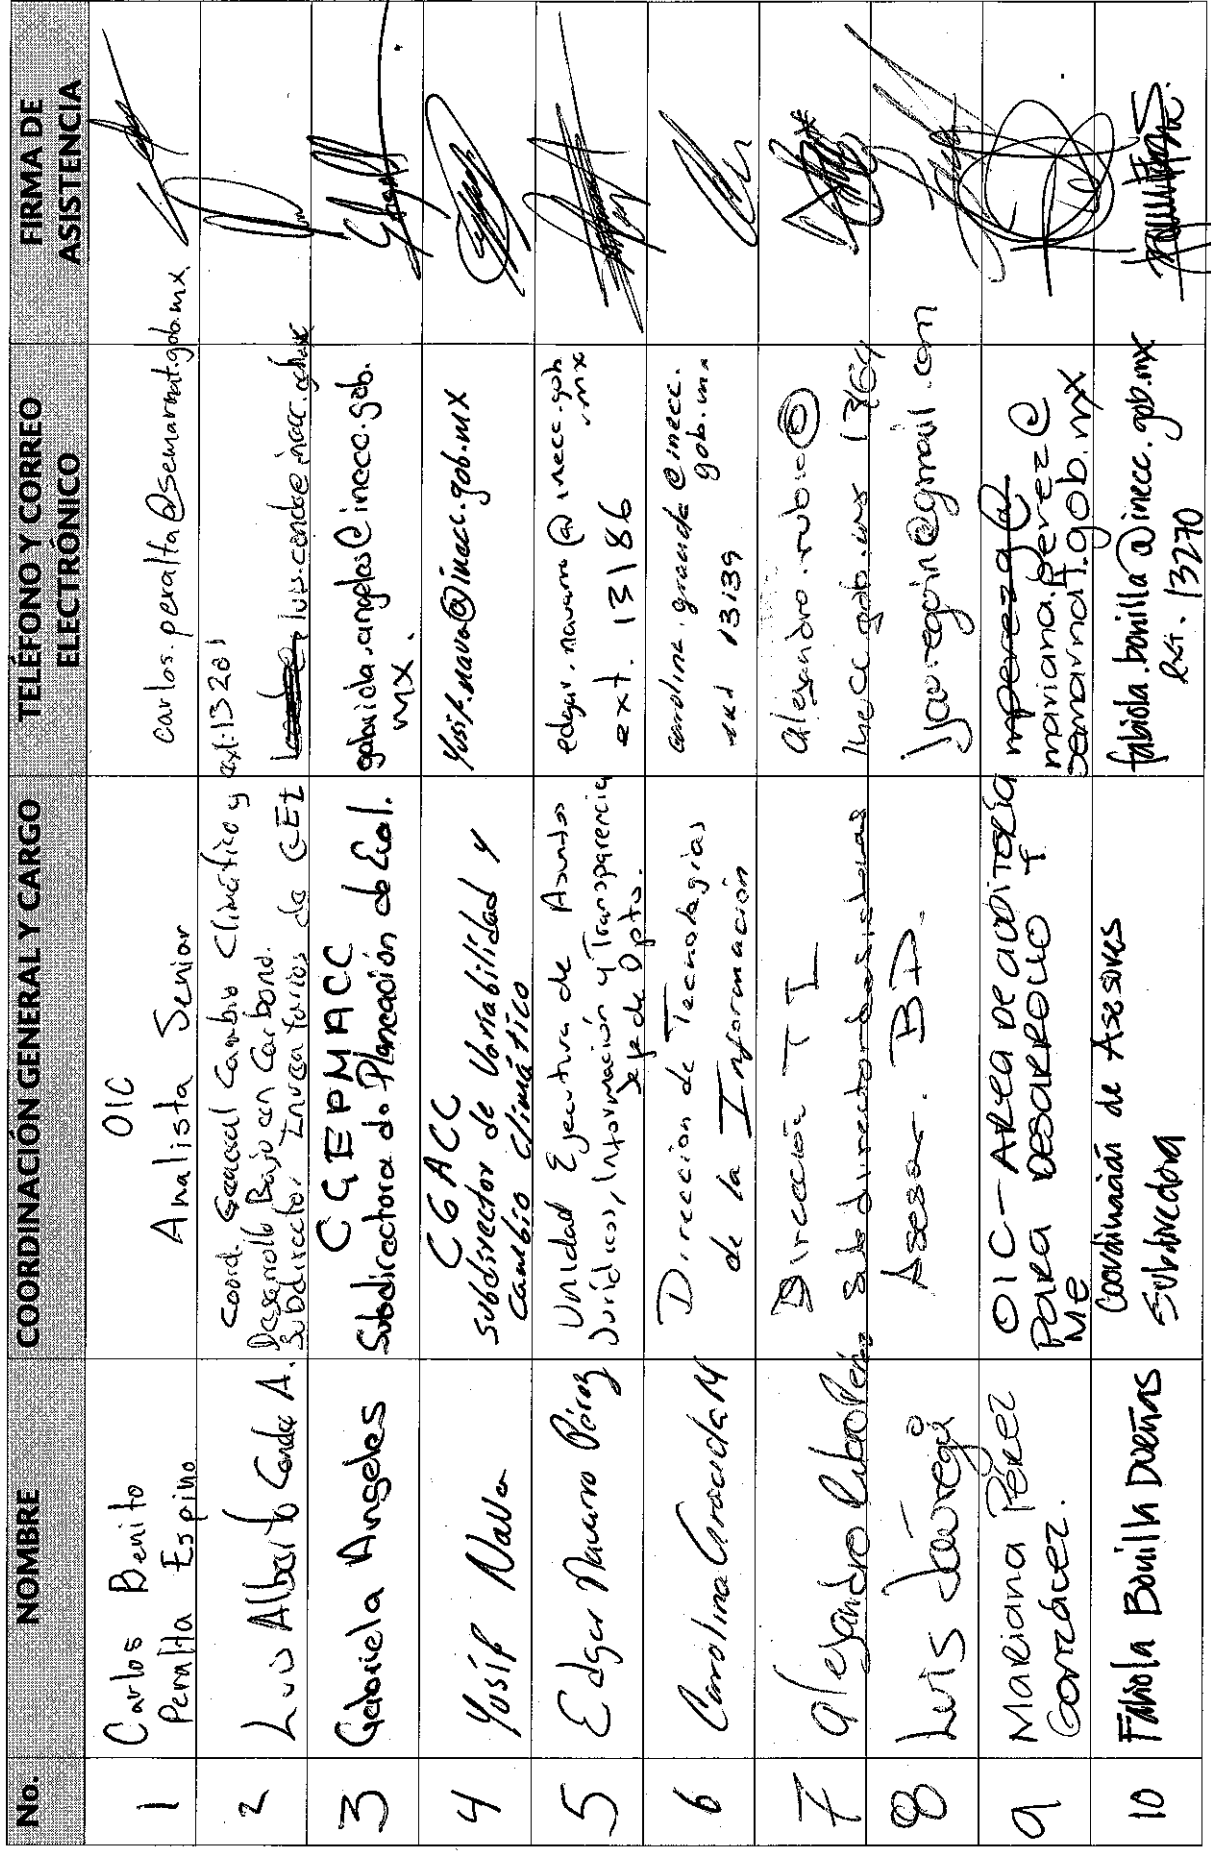 No.
NOMBRE
COORDINACIÓN GENERAL Y CARGO
TELÉFONO Y CORREO
ELECTRÓNICO
FIRMA DE
ASISTENCIA
1
Carlos Benito
Peralta Espino
OIC
Analista Senior
carlos.peralta@semarnat.gob.mx
2
Luis Alberto Conde A.
Coord. General Cambio Climático y
Desarrollo Bajo en Carbono.
Subdirector Inventarios de GEI
ext-13201
luis.conde@inecc.gob.mx
3
Gabriela Angeles
CGEPMACC
Subdirectora de Planeación de Eval.
gabriela.angeles@inecc.gob.
mx.
4
Yusif Nava
CGACC
subdirector de Variabilidad y
cambio climático
yusif.nava@inecc.gob.mx
5
Edgar Navarro Pérez
Unidad Ejecutiva de Asuntos
Jurídicos, Información y Transparencia
Jefe de Dpto.
edgar.navarro@inecc.gob
.mx
ext. 13186
6
Carolina Granada M
Dirección de Tecnologías
de la Información
carolina.granada@inecc.
gob.mx
ext 13139
7
Alejandro Rubio Pérez
Dirección TI
Subdirector de sistemas
alejandro.rubio@
inecc.gob.mx 1364
8
Luis Jáuregui
Asesor. BD.
ljauregoin@gmail.com
9
Mariana Pérez
González.
OIC - AREA DE AUDITORÍA
PARA DESARROLLO Y
ME
mperezg@
mariana.perez@
semarnat.gob.mx
10
Fabiola Bonilla Dueñas
Coordinación de Asesores
Subdirectora
fabiola.bonilla@inecc.gob.mx
Ext. 13270